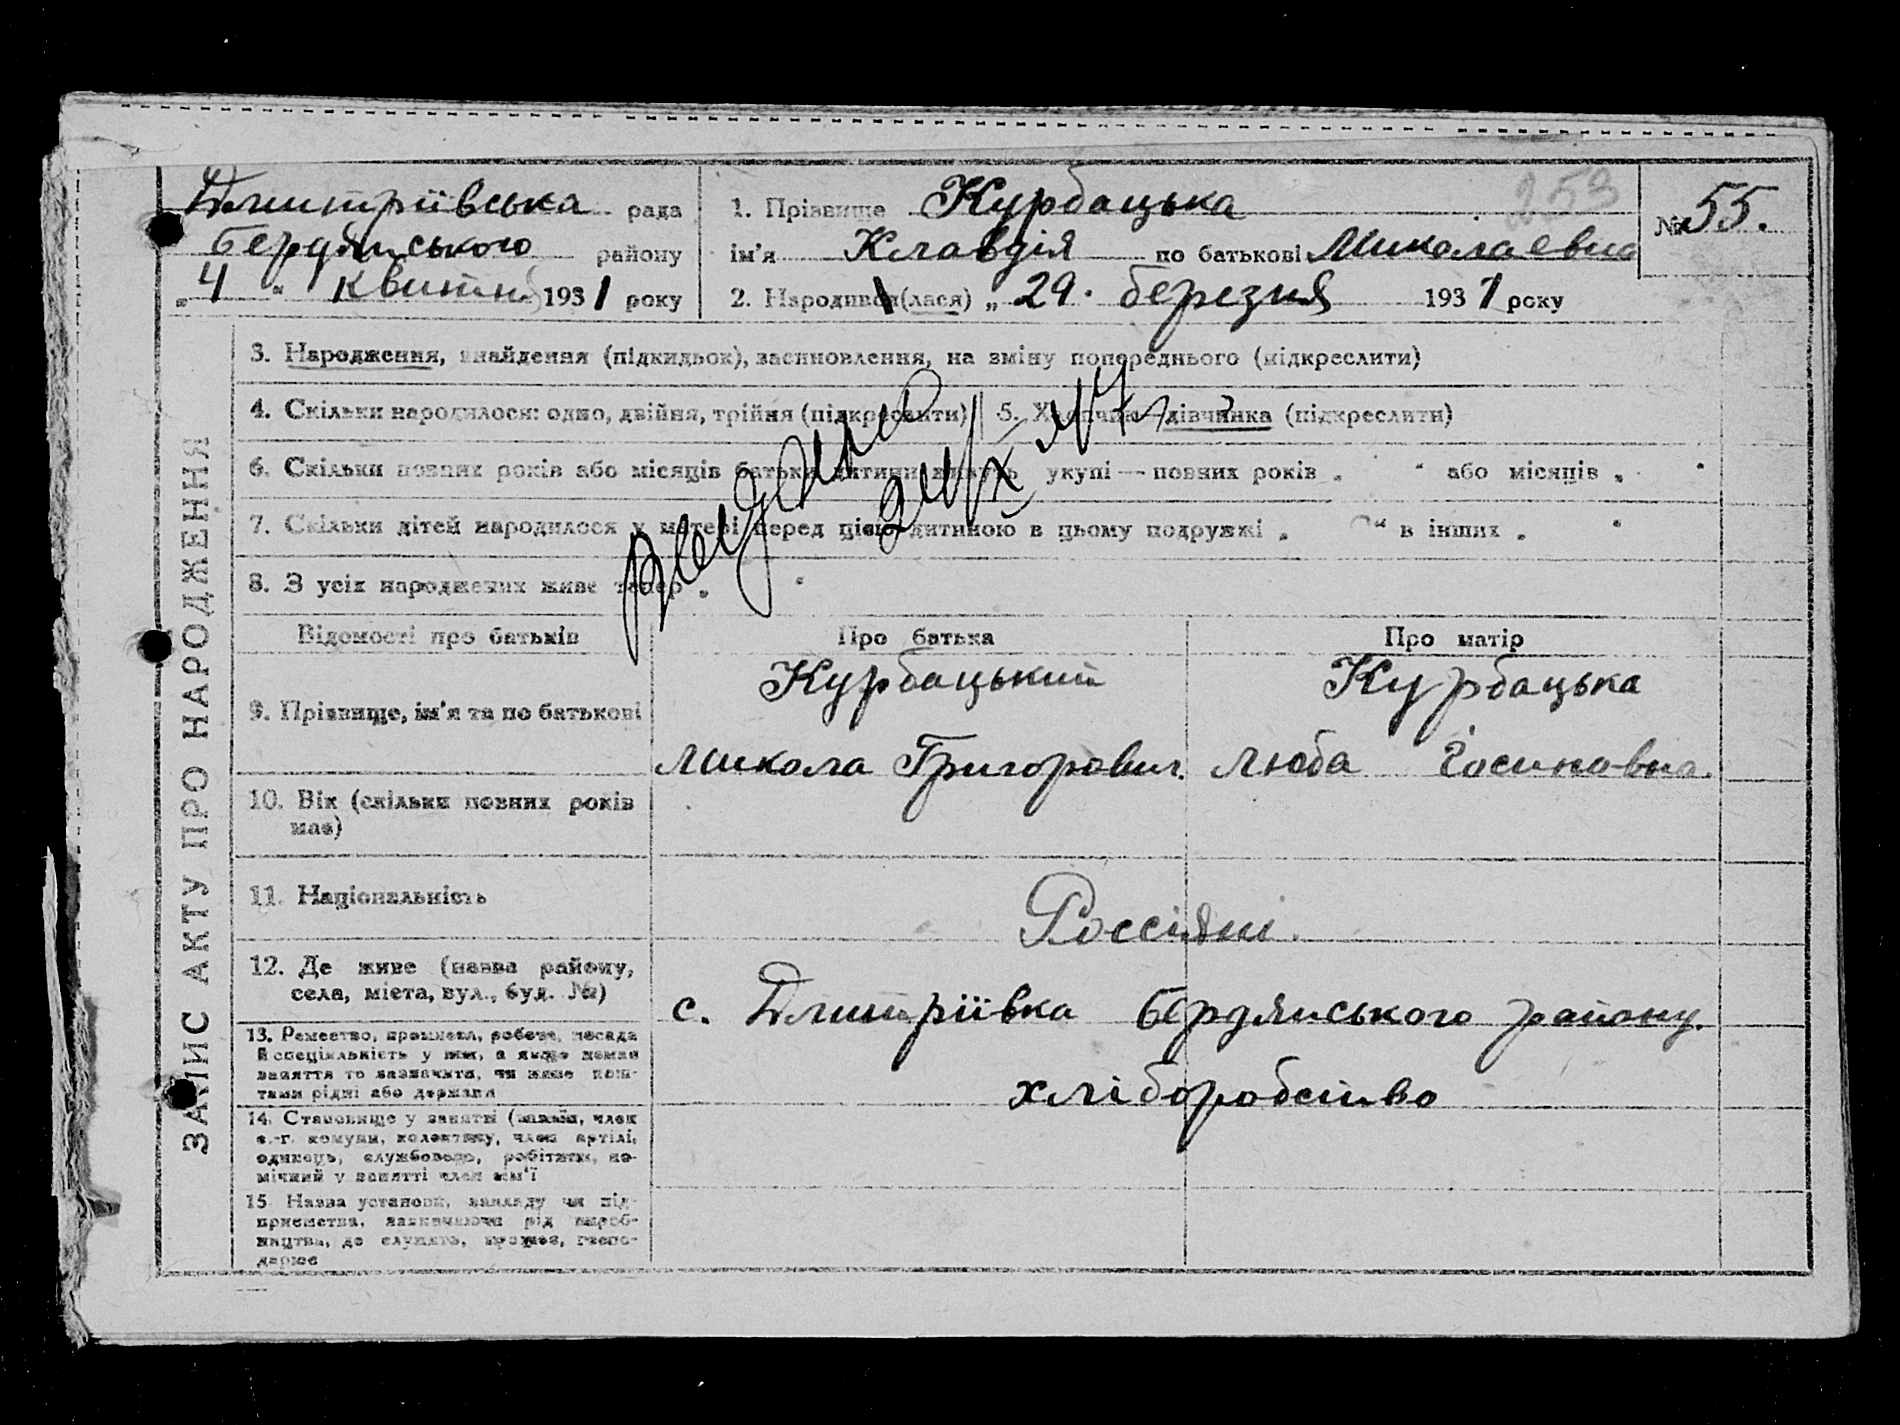 253
Дмитріївська рада
Бердянського району
„ 4 " квітня 1931 року
1. Прізвище Курбацька
ім'я Клавдія по батькові Миколаевна
№ 55.
2. Народивсь (лася) „ 29. березня 1931 року
ЗАПИС АКТУ ПРО НАРОДЖЕННЯ
3. Народження, знайдення (підкидьок), засиновлення, на зміну попереднього (підкреслити)
4. Скільки народилося: одно, двійня, трійня (підкреслити) 5. Хлопчик, дівчинка (підкреслити)
6. Скільки повних років або місяців батьки дитини живуть укупі — повних років . або місяців .
7. Скільки дітей народилося у матері перед цією дитиною в цьому подружжі . в інших .
8. З усіх народжених живе тепер .
Відомості про батьків Про батька Про матір
9. Прізвище, ім'я та по батькові
Курбацький
Микола Григорович.
Курбацька
Люба
10. Вік (скільки повних років
має)
11. Національність
Россіяни.
12. Де живе (назва району,
села, міста, вул., буд. №)
с. Дмитріівка Бердянського району.
13. Ремество, промисел, робота, посада
й спеціяльність у них, а якщо немає
заняття то зазначити, чи живе кош-
тами рідні або держави
хліборобство
14. Становище у занятті (хазяїн, член
с.-г. комуни, колективу, член артілі,
одинець, службовець, робітник, по-
мічний у занятті член сім'ї
15. Назва установи, закладу чи під-
приємства, зазначаючи рід вироб-
ництва, де служить, працює, госпо-
дарює